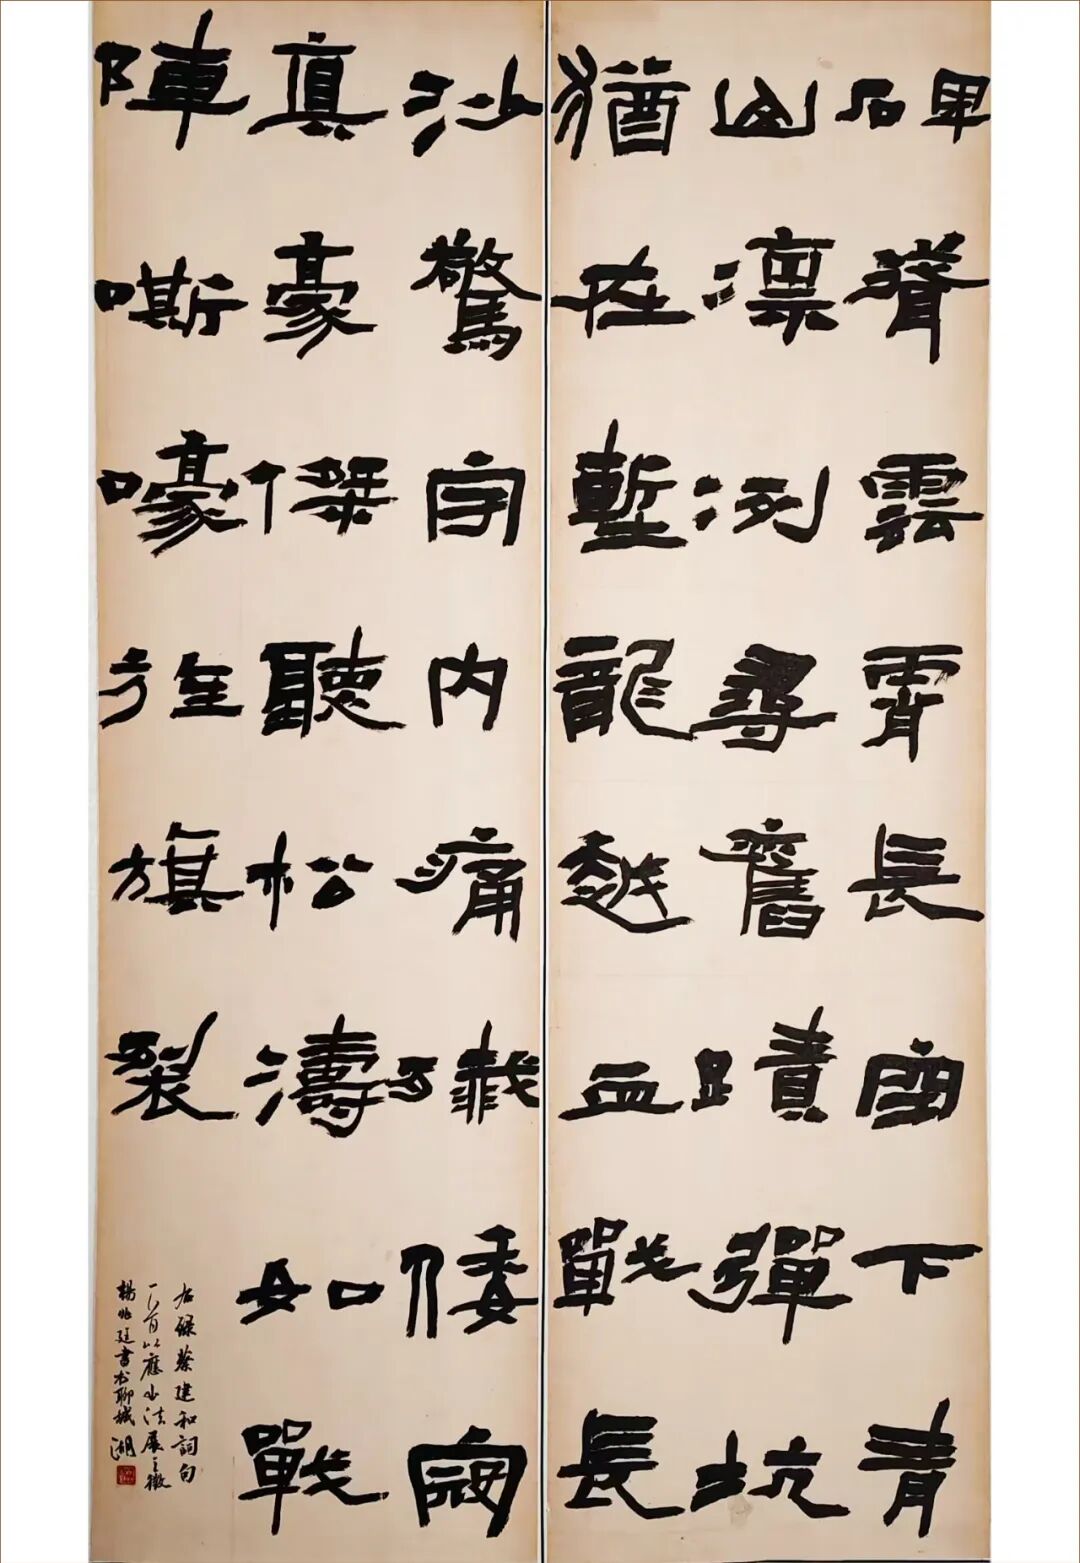 碑脊雲霄長空下青
山凜冽尋舊蹟彈坑
猶在塹龍越血戰長
沙驚宇內痛殲倭寇
真豪傑聽松濤如戰
陣嘶嚎旌旗裂
右錄蔡建和詞句
一首以應書法展之徵
楊兆廷書於聊城湖